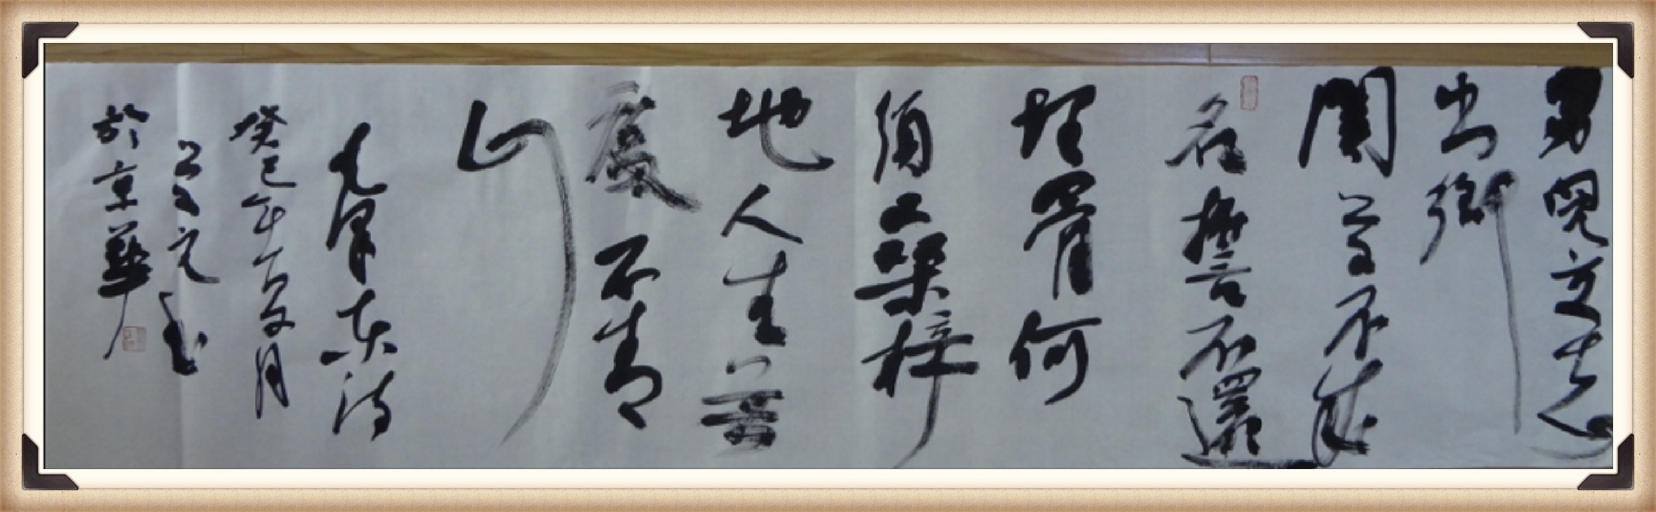 男兒立志
出鄉
關学不成
名誓不還
埋骨何
須桑梓
地人生無
處不青
山
毛澤东詩
癸巳年夏月
书
於京華